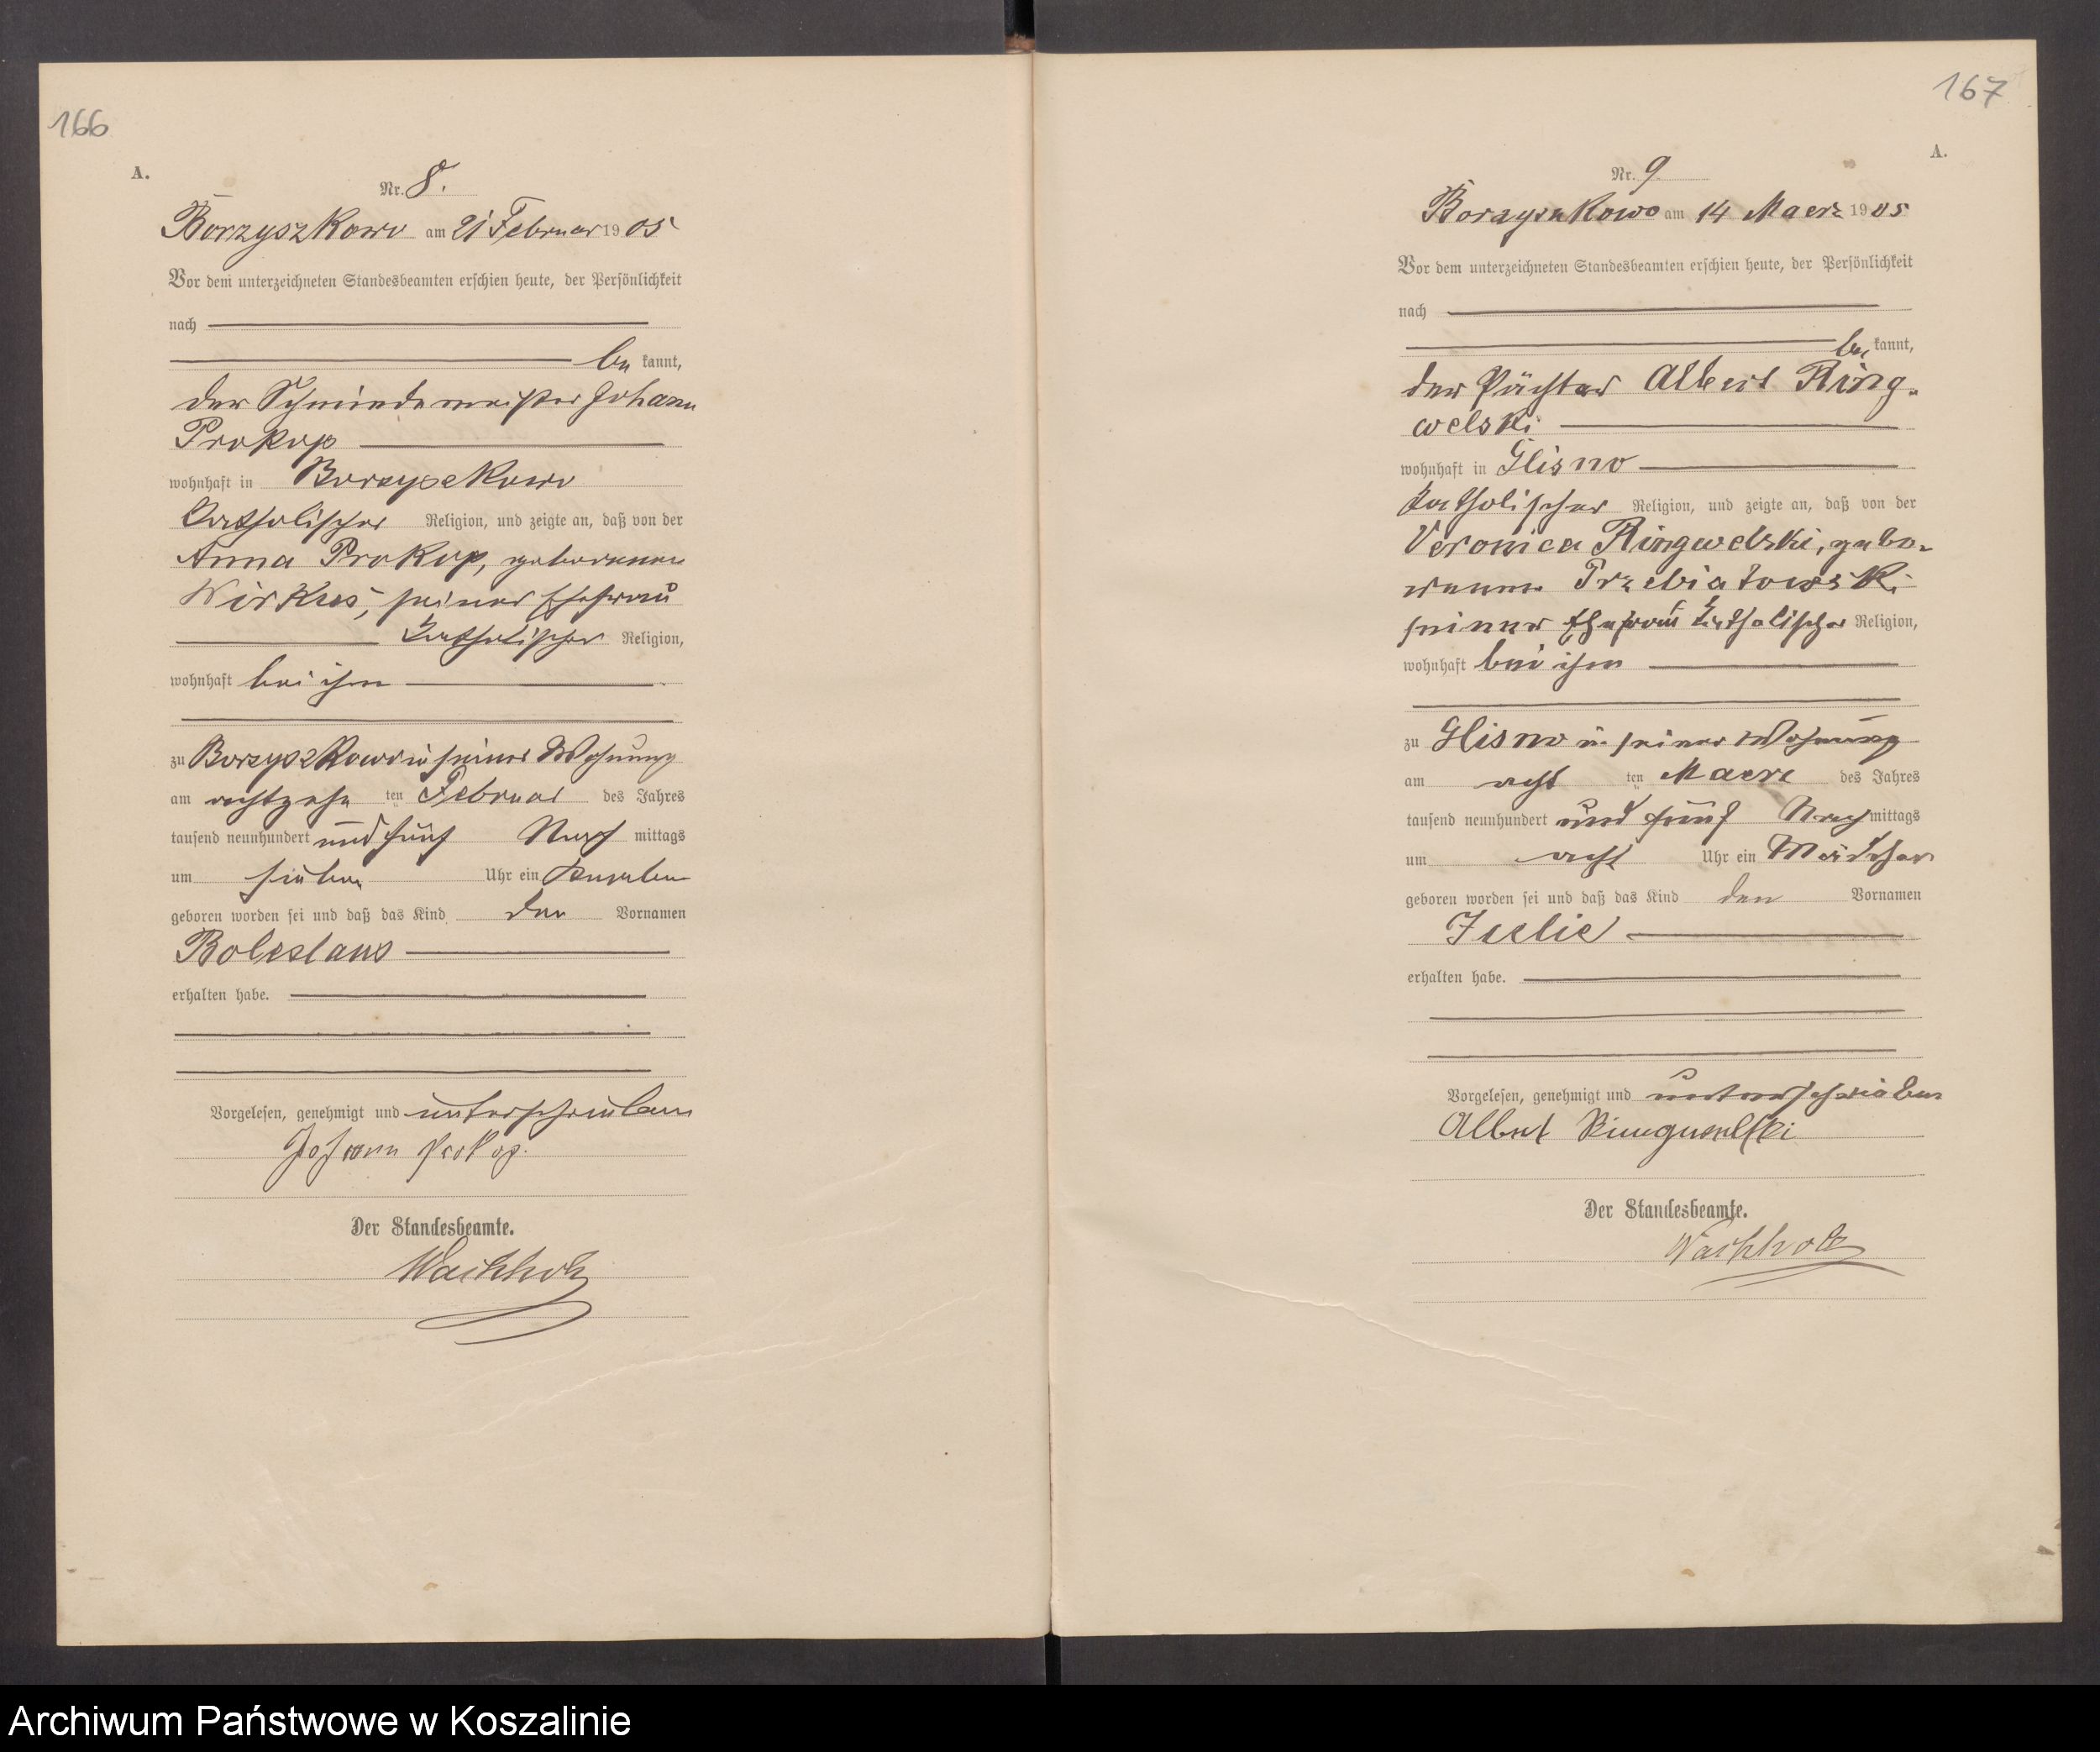 166
A.
Nr. 8.
Borzyszkowo am 21 Februar 1905
Vor dem unterzeichneten Standesbeamten erschien heute, der Persönlichkeit
nach
be kannt,
der Schmiedemeister Johann
Prokop
wohnhaft in Borzyszkowo
katholischer Religion, und zeigte an, daß von der
Anna Prokop, geborenen
Wirkus, seiner Ehefrau
katholischer Religion,
wohnhaft bei ihm
zu Borzyszkowo in seiner Wohnung
am achtzehn ten Februar des Jahres
tausend neunhundert und fünf Nach mittags
um sieben Uhr ein Knaben
geboren worden sei und daß das Kind den Vornamen
Boleslaus
erhalten habe.
Vorgelesen, genehmigt und unterschrieben
Johann Prokop.
Der Standesbeamte.
Wachholz
167
A.
Nr. 9
Borzyszkowo am 14 Maerz 1905
Vor dem unterzeichneten Standesbeamten erschien heute, der Persönlichkeit
nach
be kannt,
der Pächter Albert Ring-
welski
wohnhaft in Glisno
katholischer Religion, und zeigte an, daß von der
Veronica Ringwelski, gebo-
renen Trzebiatowski
seiner Ehefrau katholischer Religion,
wohnhaft bei ihm
zu Glisno in seiner Wohnung
am acht ten Maerz des Jahres
tausend neunhundert und fünf Nach mittags
um acht Uhr ein Mädchen
geboren worden sei und daß das Kind den Vornamen
Julie
erhalten habe.
Vorgelesen, genehmigt und unterschrieben
Albert Ringwelski
Der Standesbeamte.
Wachholz
Archiwum Państwowe w Koszalinie